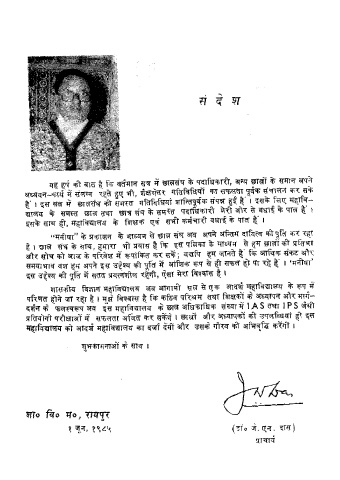 संदेश
यह हर्ष की बात है कि वर्तमान सत्र में छात्रसंघ के पदाधिकारी, अन्य छात्रों के समान अपने
अध्ययन-कार्य में संलग्न रहते हुए भी, शैक्षणेत्तर गतिविधियों का सफलता पूर्वक संचालन कर सके
हैं । इस सत्र में छात्रसंघ की समस्त गतिविधियां शान्तिपूर्वक संपन्न हुई हैं । इसके लिए महावि-
द्यालय के समस्त छात्र तथा छात्र संघ के समस्त पदाधिकारी मेरी ओर से बधाई के पात्र हैं ।
इसके साथ ही, महाविद्यालय के शिक्षक एवं सभी कर्मचारी बधाई के पात्र हैं ।
"मनीषा" के प्रकाशन के माध्यम से छात्र संघ अब अपने अन्तिम दायित्व की पूर्ति कर रहा
है । छात्र संघ के साथ, हमारा भी प्रयास है कि इस पत्रिका के माध्यम से हम छात्रों की प्रतिभा
और सोच को आज के परिवेश में रूपांकित कर सकें; यद्यपि हम जानते हैं कि आर्थिक संकट और
समयाभाव वश हम अपने इस उद्देश्य की पूर्ति में आंशिक रूप से ही सफल हो पा रहे हैं । 'मनीषा'
इस उद्देश्य की पूर्ति में सतत प्रयत्नशील रहेगी, ऐसा मेरा विश्वास है ।
शासकीय विज्ञान महाविद्यालय अब आगामी सत्र से एक आदर्श महाविद्यालय के रूप में
परिणत होने जा रहा है । मुझे विश्वास है कि कठिन परिश्रम तथा शिक्षकों के अध्यापन और मार्ग-
दर्शन के फलस्वरूप अब इस महाविद्यालय के छात्र अधिकाधिक संख्या में IAS तथा IPS जैसी
प्रतियोगी परीक्षाओं में सफलता अर्जित कर सकेंगे । छात्रों और अध्यापकों की उपलब्धियां ही इस
महाविद्यालय को आदर्श महाविद्यालय का दर्जा देंगी और उसके गौरव की अभिवृद्धि करेंगी ।
शुभकामनाओं के साथ ।
शा० वि० म०, रायपुर
१ जून, १९८५
(डॉ. जे. एन. दास)
प्राचार्य